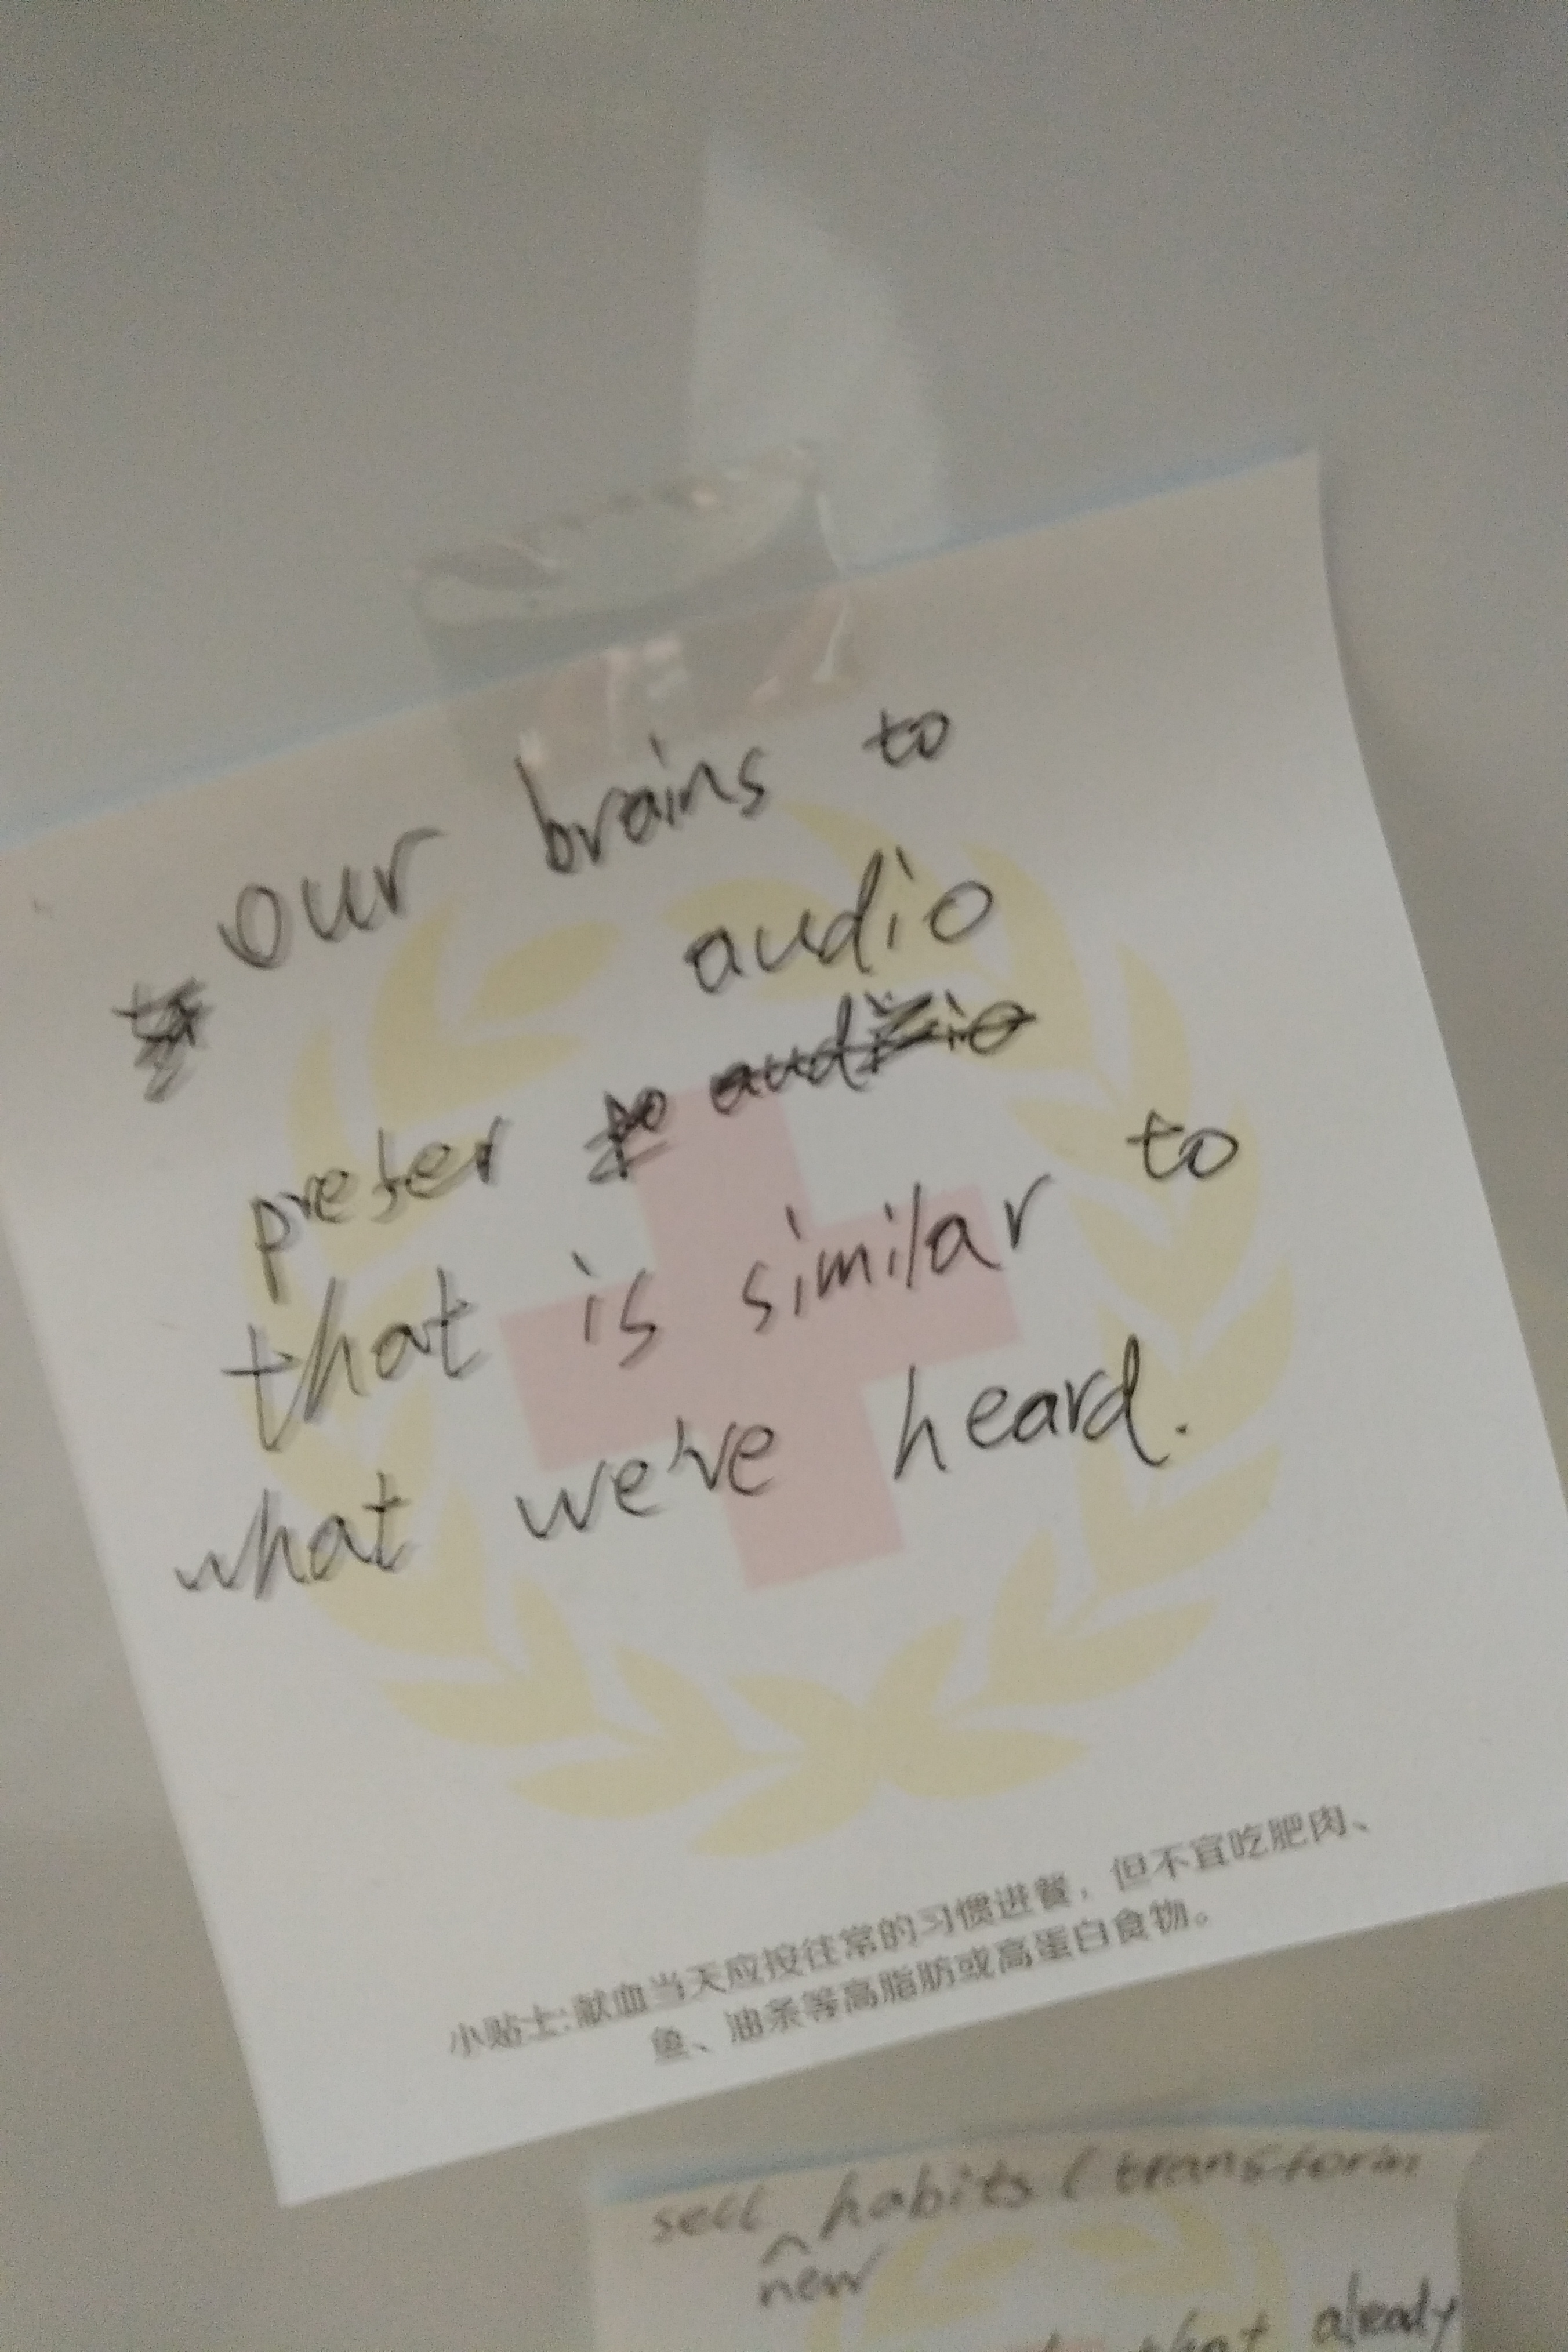 our brains to
audio
prefer
that is similar to
what we've heard.
小贴士:献血当天应按往常的习惯进餐，但不宜吃肥肉、
鱼、油条等高脂肪或高蛋白食物。
sell habits (transform
new
that already